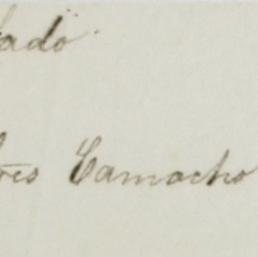 ado
res Camacho